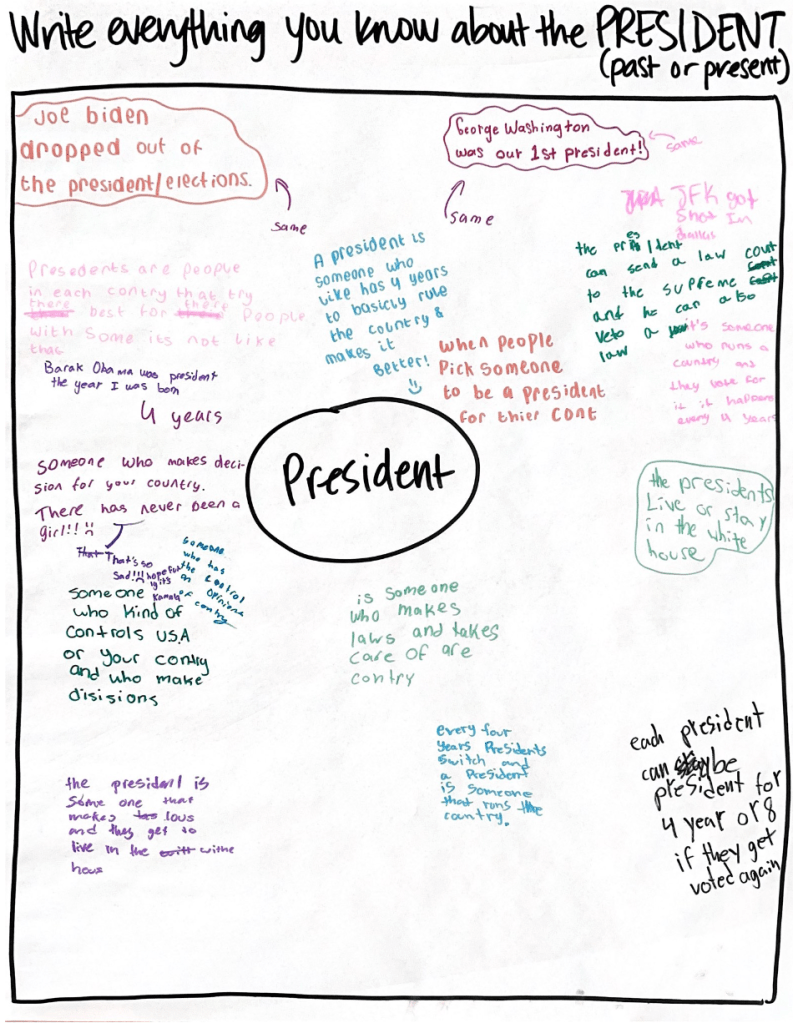 Write everything you know about the PRESIDENT
(past or present)
Joe biden
dropped out of
the president/elections.
same
George Washington
was our 1st president!
same
same
JFK got
Shot In
dallas
A president is
someone who
like has 4 years
to basicly rule
the country &
makes it
Better!
the president
can send a law
to the supreme court
and he can also
Veto a
law
Presedents are people
in each contry that try
there best for there people
with some its not like
that
Barak Obama was president
the year I was born
4 years
when people
Pick someone
to be a president
for thier cont
it's someone
who runs a
country and
they vote for
it it happens
every 4 years
President
Someone who makes deci-
sion for your country.
There has never been a
girl!!!
That That's so
Sad!!! hopefully
its
Kamala
someone
who has
the control
on opinions
of contry
the presidents
Live or stay
in the white
house
Someone
who kind of
controls USA
or your contry
and who make
disisions
is someone
who makes
laws and takes
care of are
contry
every four
years Presidents
switch and
a President
is someone
that runs the
country.
each president
can be
president for
4 year or 8
if they get
voted again
the president is
some one that
makes lous
and they get to
live in the withe
hous